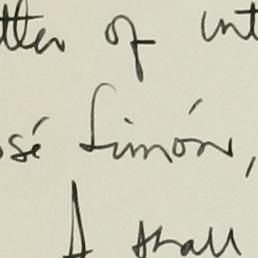 tter of int
osé Simón,
A small